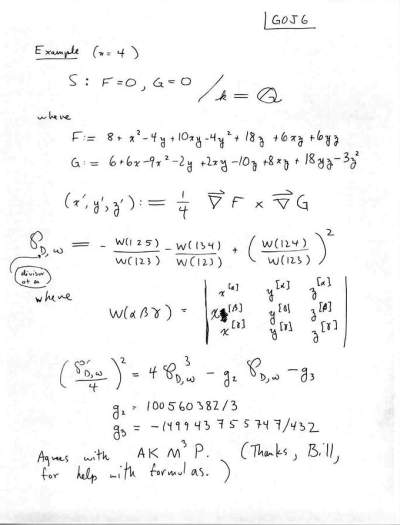 GOJ6
Example (n=4)
S: F=0, G=0 / k = ℚ
where
F:= 8 + x² - 4y + 10xy - 4y² + 18z + 6xz + 6yz
G:= 6 + 6x - 9x² - 2y + 2xy - 10z + 8xz + 18yz - 3z²
(x', y', z') := 1/4 ∇F × ∇G
℘_{D,w} = - W(125)/W(123) - W(134)/W(123) + (W(124)/W(123))²
divisor at ∞
where
W(αβγ) = | x^[α] y^[α] z^[α] |
| x^[β] y^[β] z^[β] |
| x^[γ] y^[γ] z^[γ] |
(℘'_{D,w}/4)² = 4 ℘³_{D,w} - g₂ ℘_{D,w} - g₃
g₂ = 100560382/3
g₃ = -149943755747/432
Agrees with AKM³P. (Thanks, Bill,
for help with formulas.)